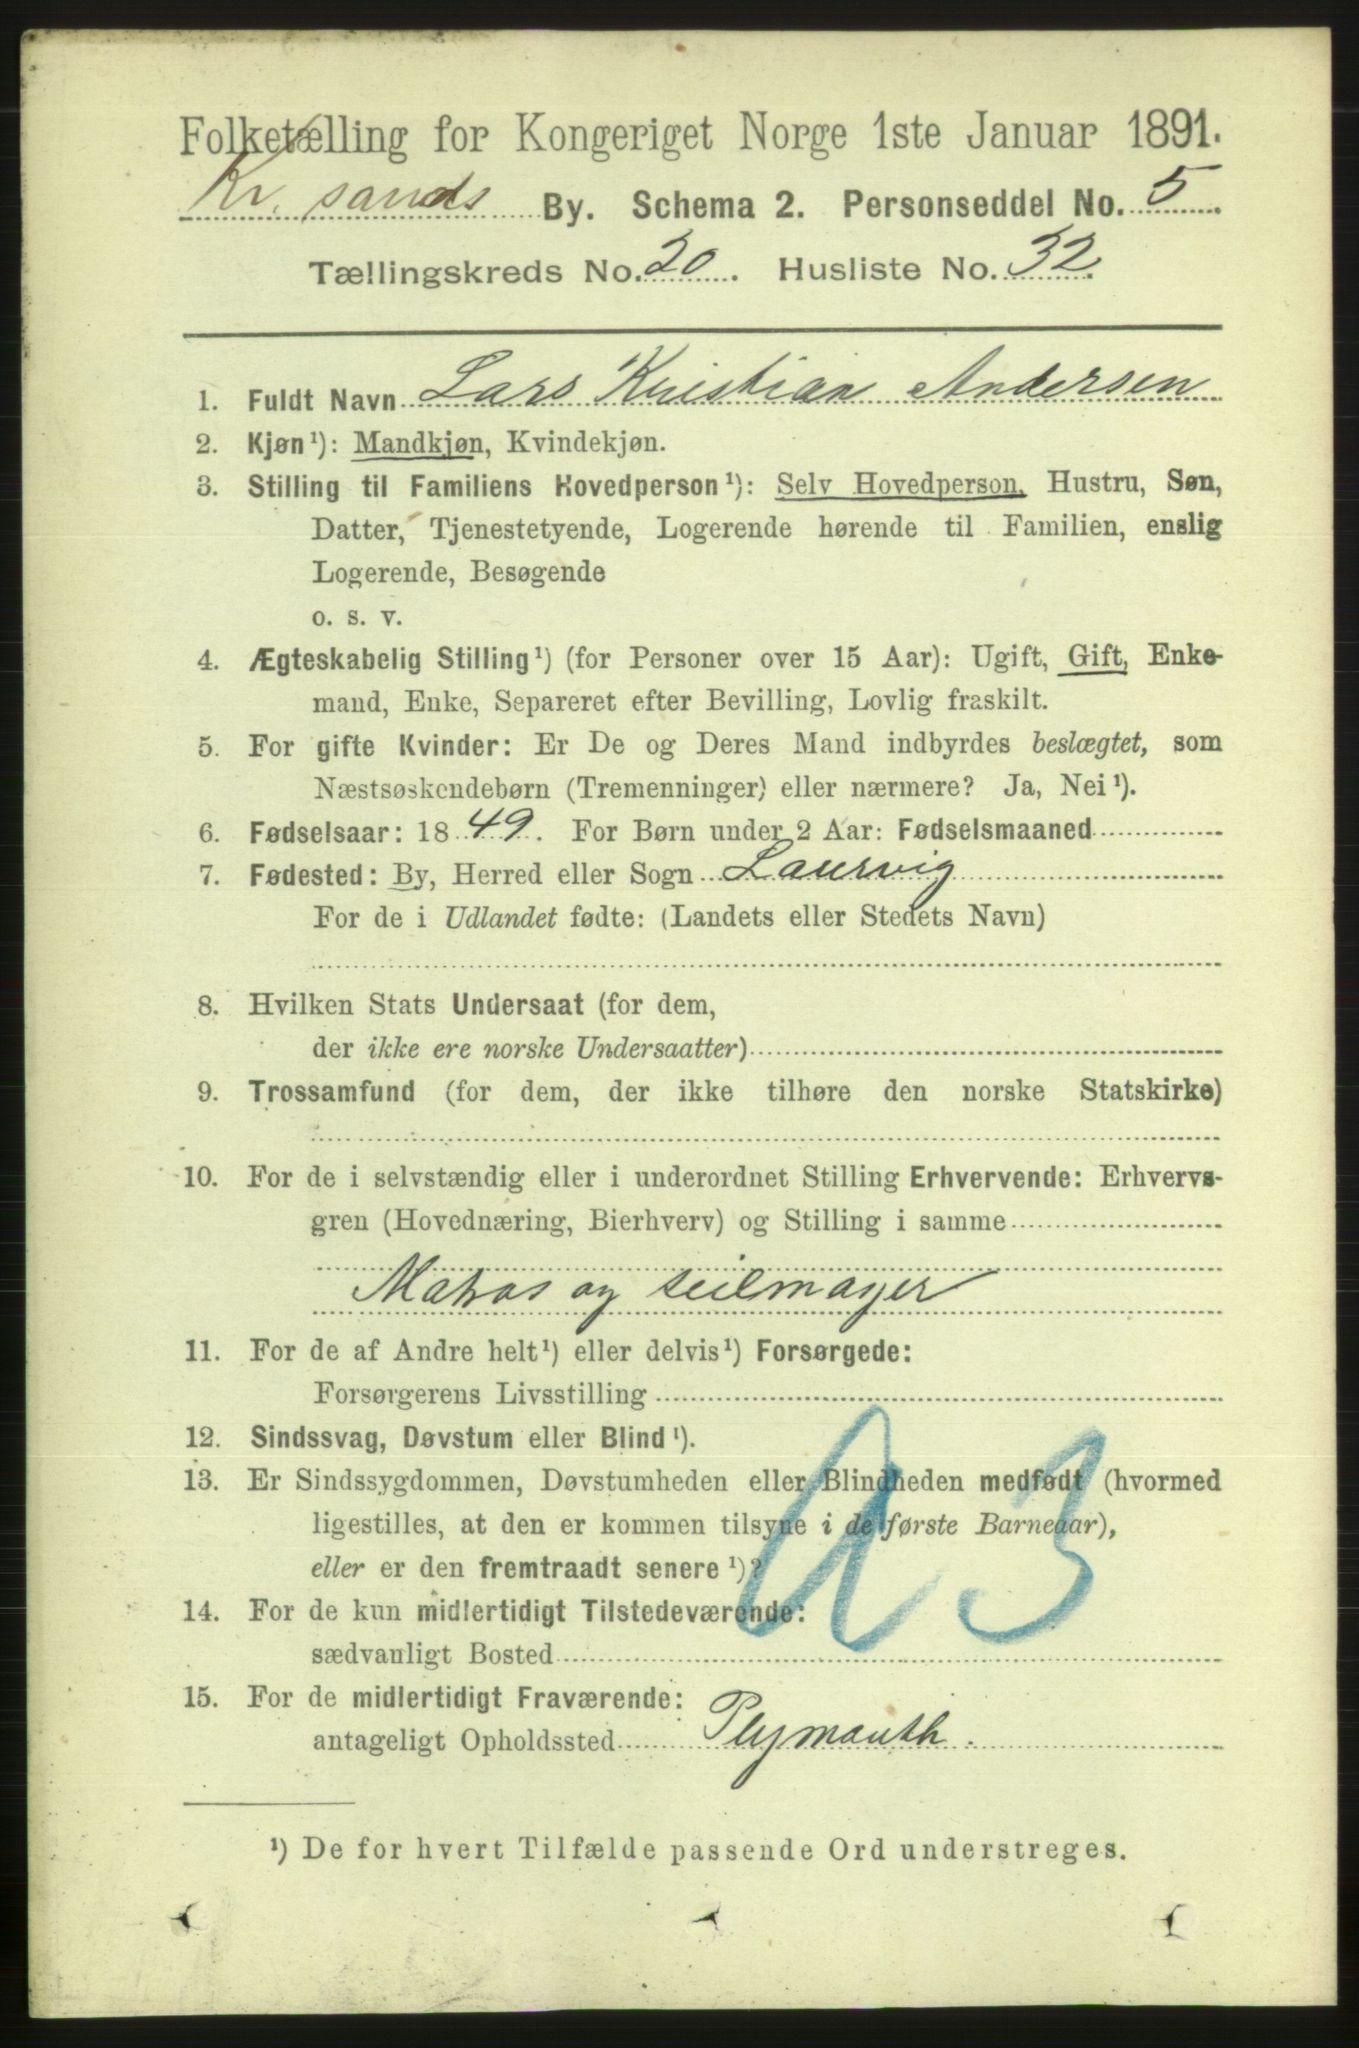 Folketælling for Kongeriget Norge 1ste Januar 1891.
Kr. sands By. Schema 2. Personseddel No. 5
Tællingskreds No. 20. Husliste No. 32
1. Fuldt Navn Lars Kristian Andersen
2. Kjøn¹): Mandkjøn, Kvindekjøn.
3. Stilling til Familiens Hovedperson¹): Selv Hovedperson, Hustru, Søn,
Datter, Tjenestetyende, Logerende hørende til Familien, enslig
Logerende, Besøgende
o. s. v.
4. Ægteskabelig Stilling¹) (for Personer over 15 Aar): Ugift, Gift, Enke-
mand, Enke, Separeret efter Bevilling, Lovlig fraskilt.
5. For gifte Kvinder: Er De og Deres Mand indbyrdes beslægtet, som
Næstsøskendebørn (Tremenninger) eller nærmere? Ja, Nei¹).
6. Fødselsaar: 1849. For Børn under 2 Aar: Fødselsmaaned
7. Fødested: By, Herred eller Sogn Laurvig
For de i Udlandet fødte: (Landets eller Stedets Navn)
8. Hvilken Stats Undersaat (for dem,
der ikke ere norske Undersaatter)
9. Trossamfund (for dem, der ikke tilhøre den norske Statskirke)
10. For de i selvstændig eller i underordnet Stilling Erhvervende: Erhvervs-
gren (Hovednæring, Bierhverv) og Stilling i samme
Matros og seilmager
11. For de af Andre helt¹) eller delvis¹) Forsørgede:
Forsørgerens Livsstilling
12. Sindssvag, Døvstum eller Blind¹).
13. Er Sindssygdommen, Døvstumheden eller Blindheden medfødt (hvormed
ligestilles, at den er kommen tilsyne i de første Barneaar),
eller er den fremtraadt senere¹)?
14. For de kun midlertidigt Tilstedeværende:
sædvanligt Bosted
15. For de midlertidigt Fraværende:
antageligt Opholdssted Plymouth.
¹) De for hvert Tilfælde passende Ord understreges.